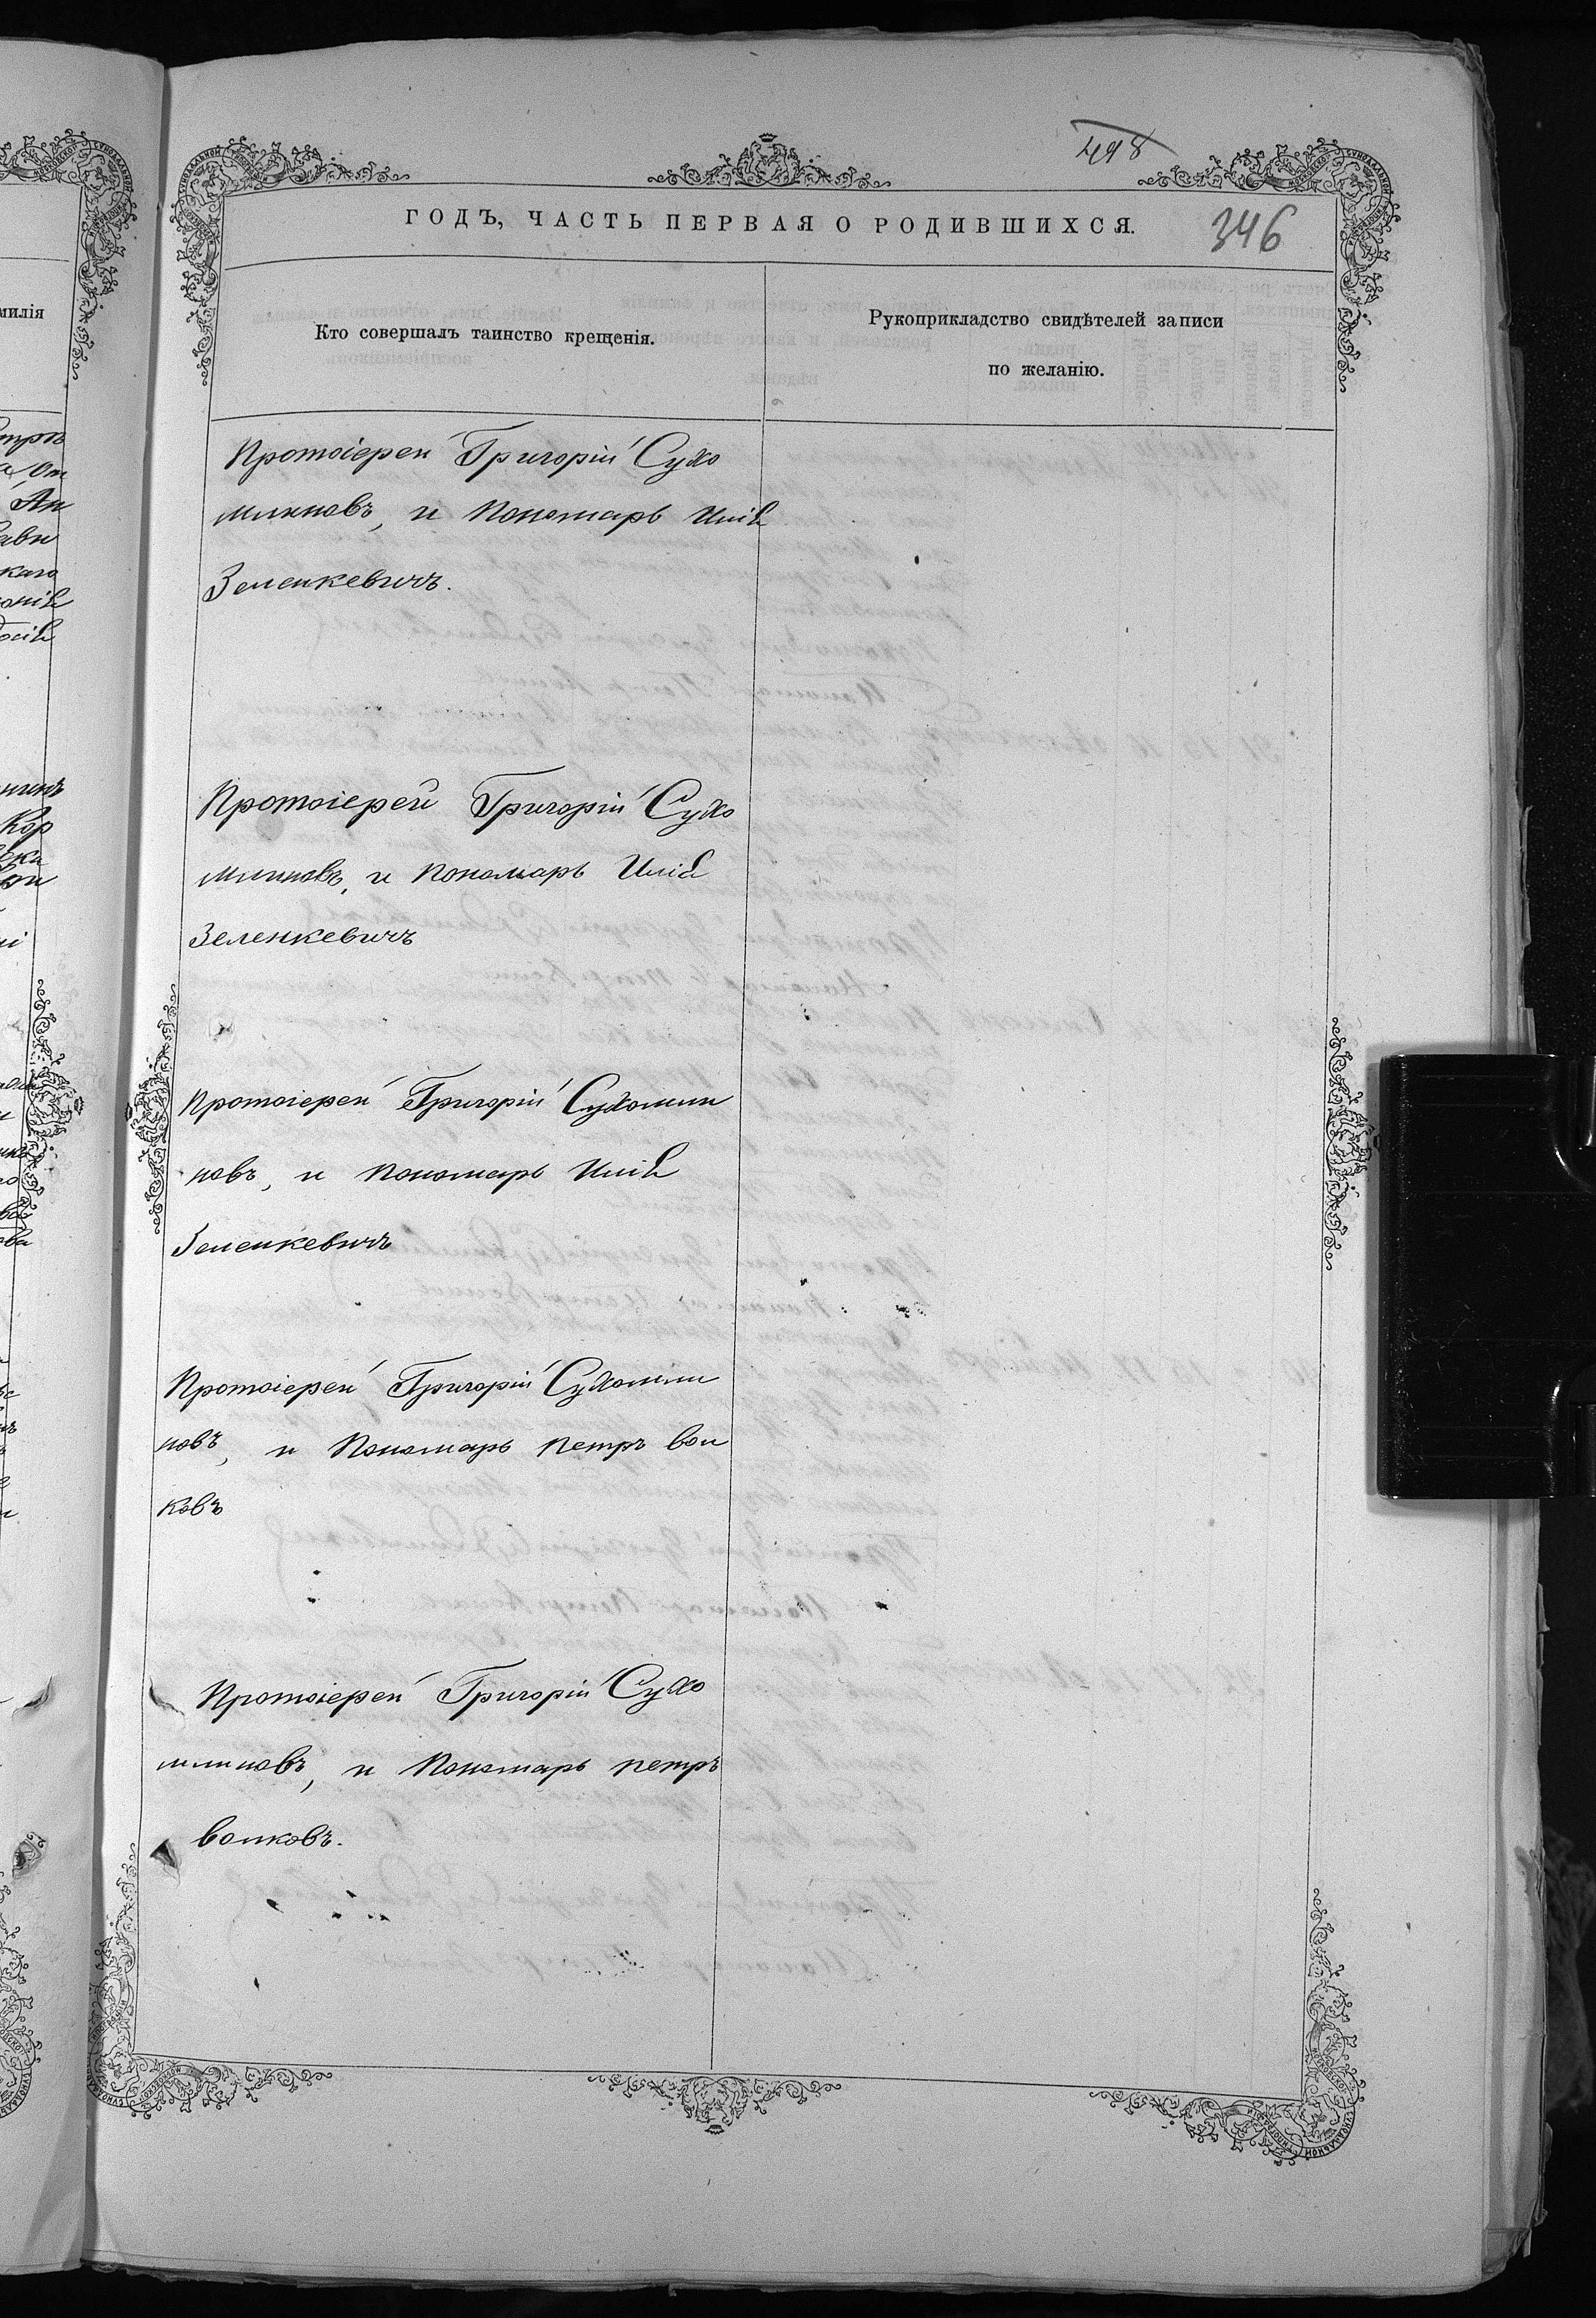 498
ГОДЪ, ЧАСТЬ ПЕРВАЯ О РОДИВШИХСЯ.
346
Кто совершалъ таинство крещенія.
Рукоприкладство свидѣтелей записи
по желанію.
Протоіерей Григорій Сухо
млиновъ, и Пономарь Илія
Зеленкевичъ.
Протоіерей Григорій Сухо
млиновъ, и Пономарь Илія
Зеленкевичъ
Протоіерей Григорій Сухомли
новъ, и Пономарь Илія
Зеленкевичъ
Протоіерей Григорій Сухомли
новъ, и Пономарь Петръ Вол
ковъ
Протоіерей Григорій Сухо
млиновъ, и Пономарь Петръ
Волковъ.